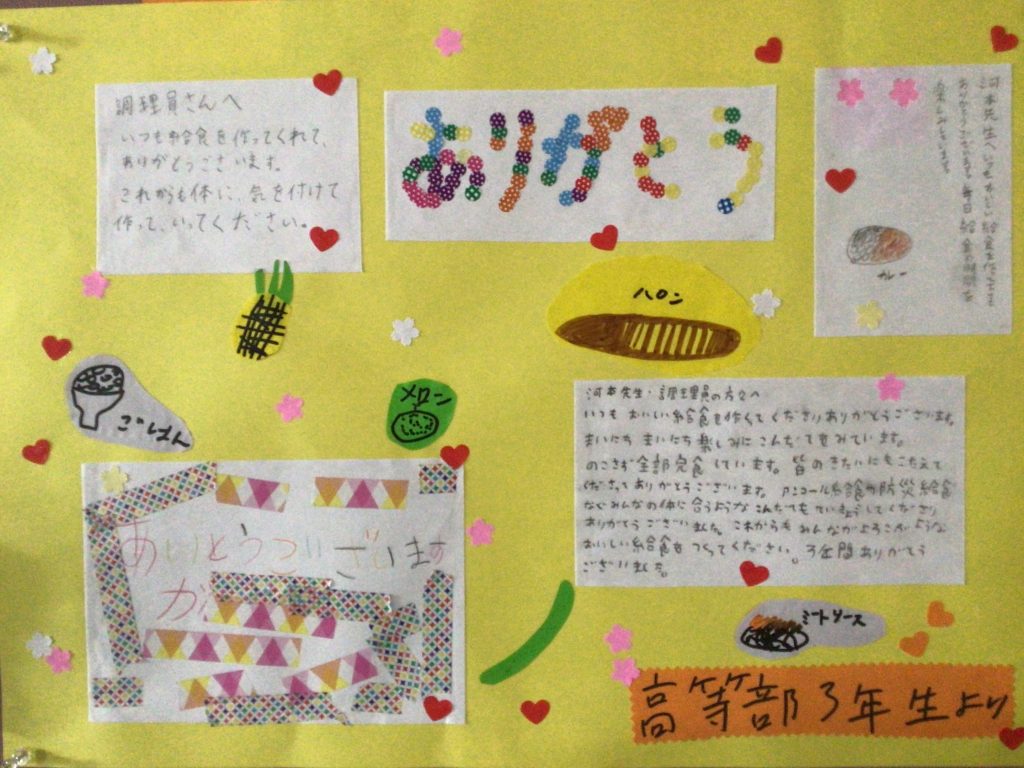 調理員さんへ
いつも給食を作ってくれて、
ありがとうございます。
これからも体に、気を付けて
作って、いってください。
ありがとう
河本先生へ いつもおいしい給食を作ってくれて
ありがとうございます。毎日給食の時間を
楽しみにしています。
カレー
ハロン
ごはん
メロン
河本先生・調理員の方々へ
いつもおいしい給食を作ってくださりありがとうございます。
まいにちまいにち楽しみにこんだてをみています。
のこさず全部完食しています。皆のきたいにもこたえて
くださってありがとうございます。アンコール給食や防災給食
などみんなの体に合うようなこんだてもていきょうしてくださり
ありがとうございました。これからもみんながよろこぶような
おいしい給食をつくってください。3年間ありがとう
ございました。
ありとうございざいます
が
ミートソース
高等部3年生より